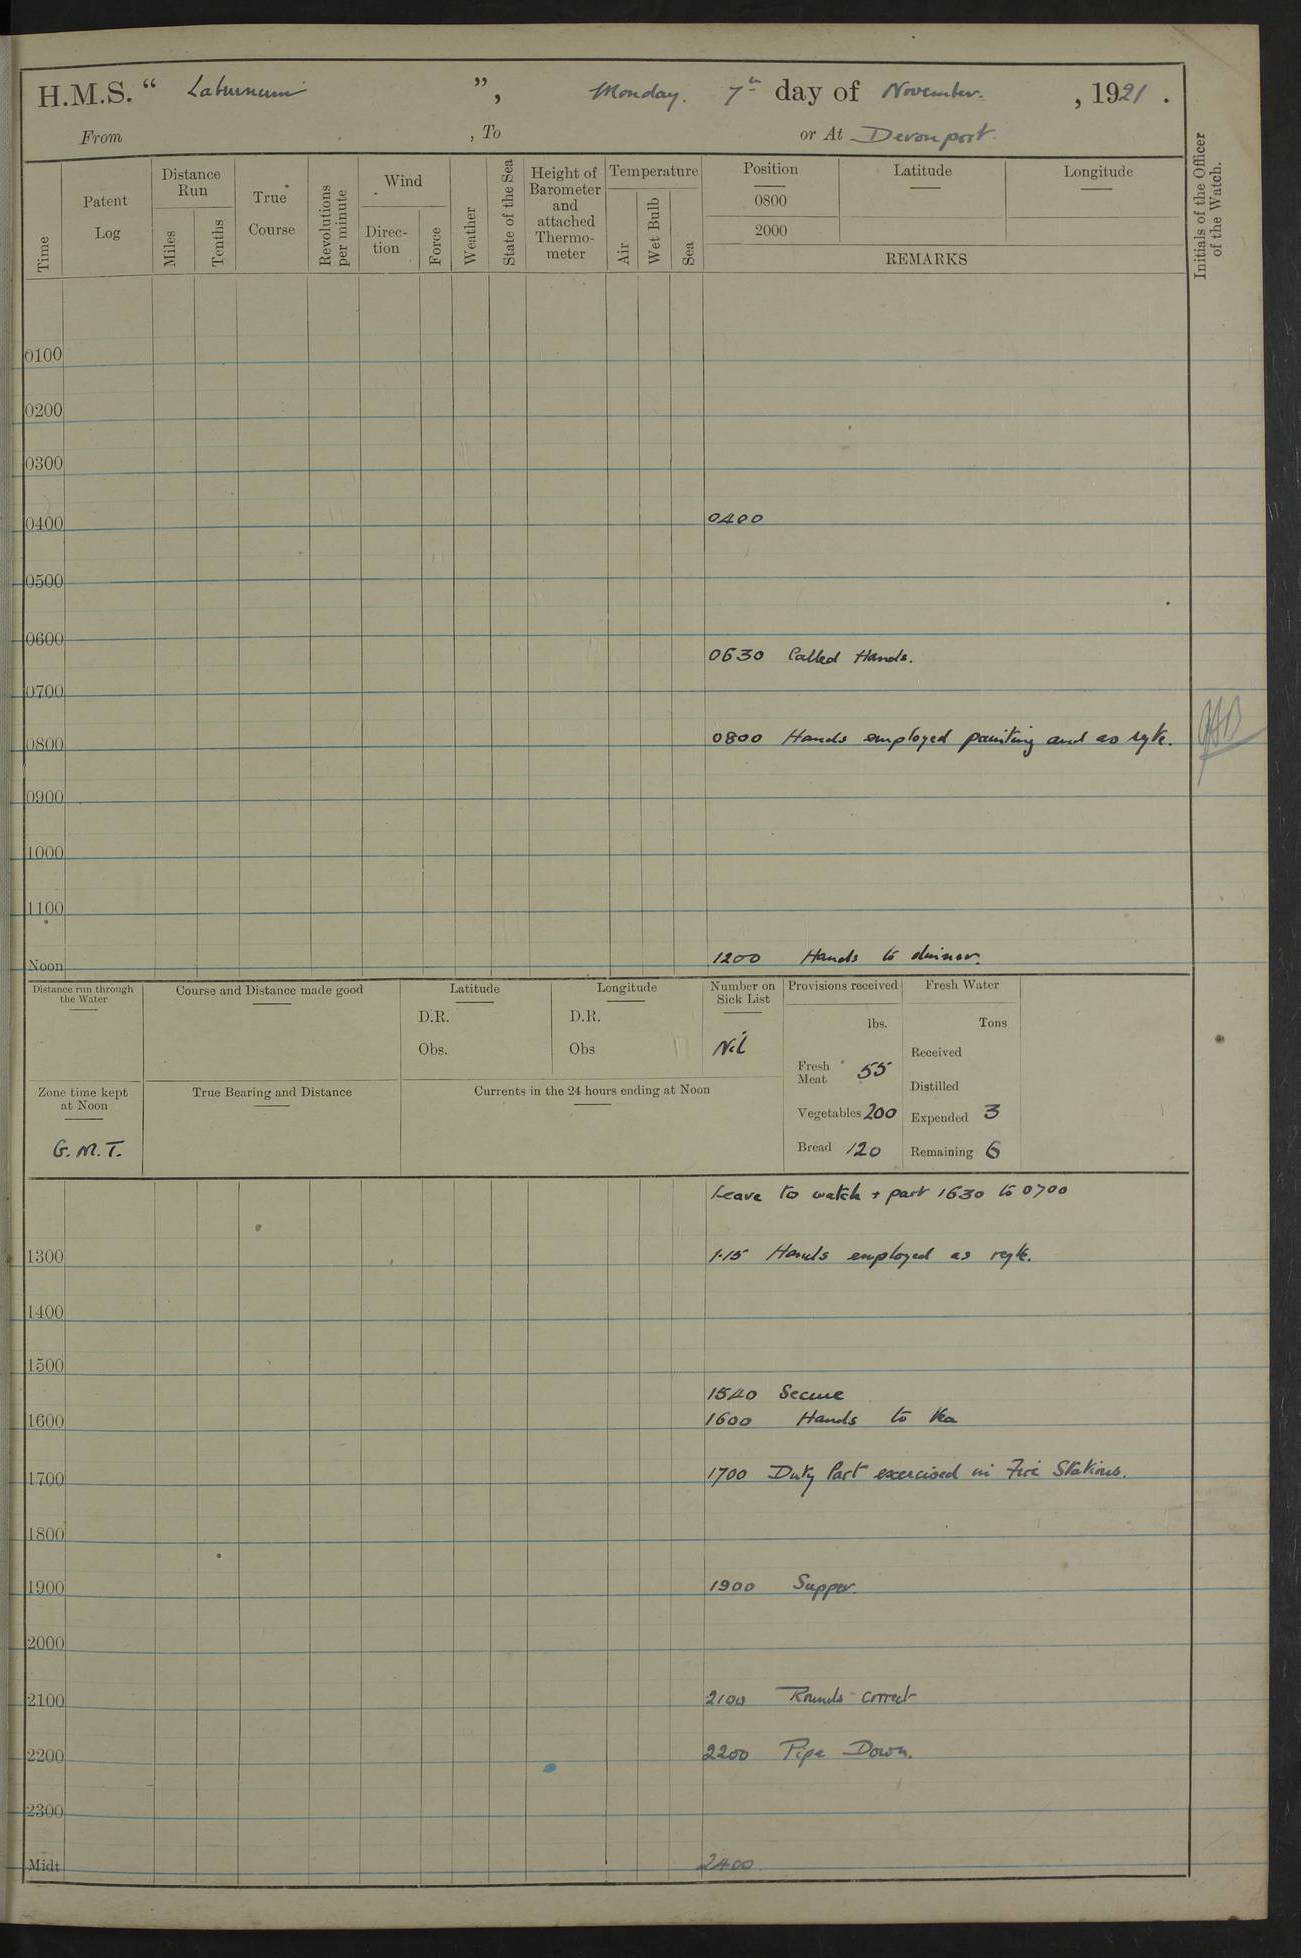 H.M.S. “ Laburnum ”, Monday. 7th day of November. , 1921 .
From , To or At Devonport.
Time
Patent Log
Distance Run
Miles
Tenths
True Course
Revolutions per minute
Wind
Direc-tion
Force
Weather
State of the Sea
Height of Barometer and attached Thermo-meter
Temperature
Air
Wet Bulb
Sea
Position
0800
2000
Latitude
Longitude
REMARKS
Initials of the Officer of the Watch.
0100
0200
0300
0400 0400
0500
0600
0630 Called Hands.
0700
0800 0800 Hands employed painting and as reqte.
0900
1000
1100
Noon 1200 Hands to dinner.
Distance run through the Water
Course and Distance made good
Latitude
D.R.
Obs.
Longitude
D.R.
Obs
Number on Sick List
Nil
Provisions received
lbs.
Fresh Meat 55
Vegetables 200
Bread 120
Fresh Water
Tons
Received
Distilled
Expended 3
Remaining 6
Zone time kept at Noon
G.M.T.
True Bearing and Distance
Currents in the 24 hours ending at Noon
Leave to watch + part 1630 to 0700
1300 1.15 Hands employed as reqte.
1400
1500
1540 Secure
1600 1600 Hands to tea
1700 1700 Duty Part exercised in Fire Stations.
1800
1900 1900 Supper.
2000
2100 2100 Rounds correct
2200 2200 Pipe Down.
2300
Midt 2400